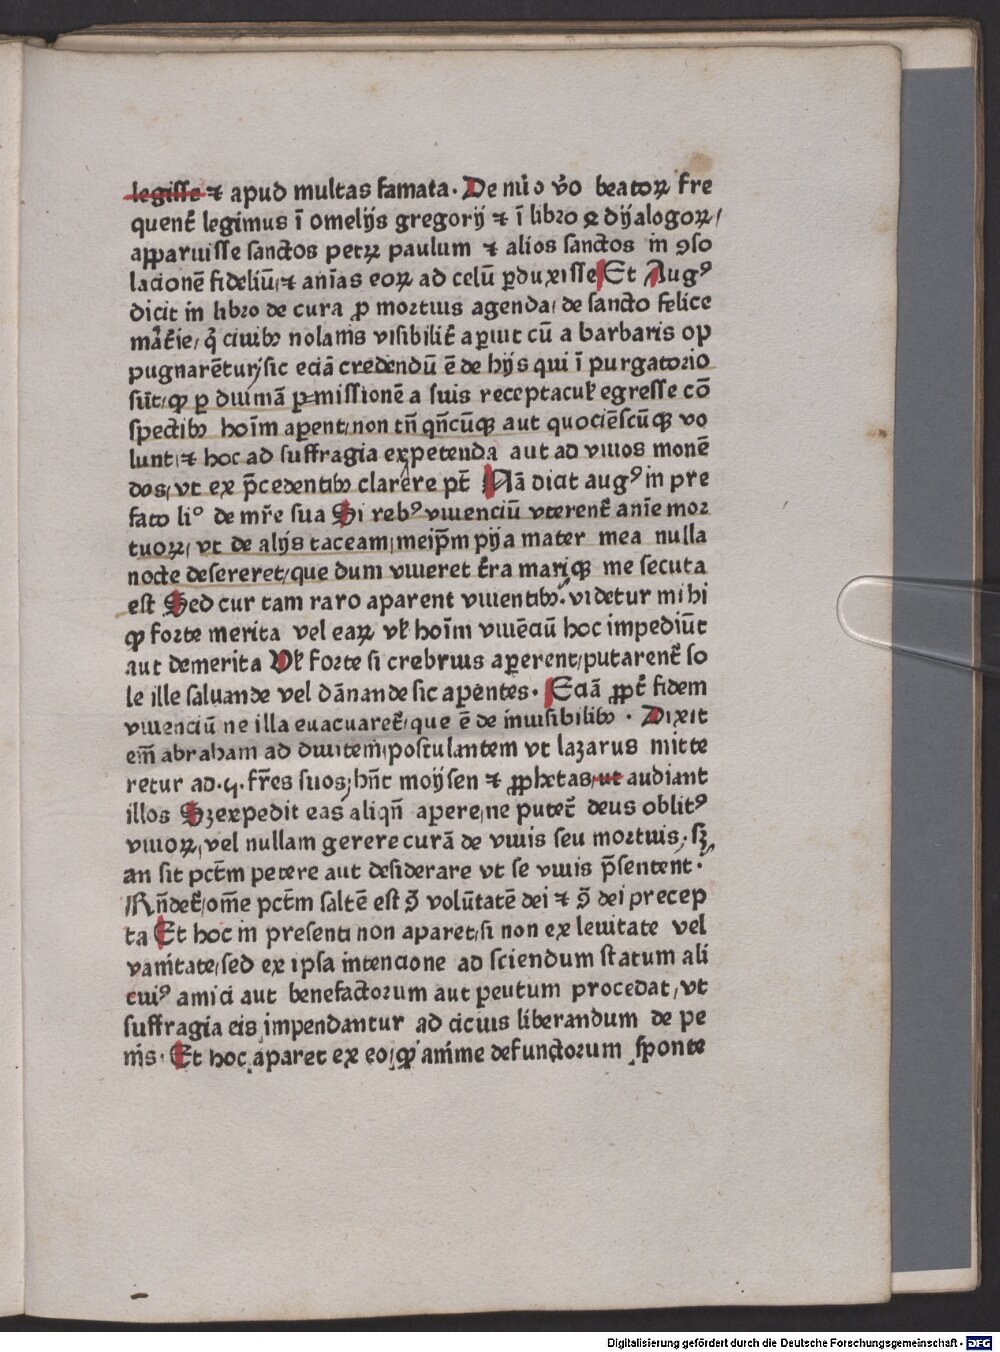 legisse ⁊ apud multas famata. De mĩo v̾o beatoꝝ fre
quent̃ legimus ĩ omelijs gregorij ⁊ ĩ libro ⁊ dyalogoꝝ/
apparuisse sanctos petrꝝ paulum ⁊ alios sanctos in ꝯso
lacionē fideliū/⁊ anīas eoꝝ ad celū ꝑduxisse Et Augꝰ
dicit in libro de cura ꝓ mortuis agenda/ de sancto felice
ciuibꝫ nolanis visibilit̃ aꝑuit cū a barbaris op
pugnarētur/sic eciā credendū ē de hijs qui ī purgatorio
sūt/ꝙ ꝑ diuinā ꝑ=missionē a suis receptacuł egresse cō
spectibꝫ hoīm aꝑent/non tñ qñcūqꝫ aut quociēscūqꝫ vo
lunt/⁊ hoc ad suffragia expetenda aut ad viuos monē
dos/vt ex p̄cedentibꝫ clarere pt̃ Nā dicit augꝰ in pre
fato liº de mr̄e sua Si rebꝰ viuenciū vterent̃ anīe mor
tuoꝝ/ vt de alijs taceam/meip̄m pija mater mea nulla
nocte desereret/que dum viueret t̃ra mariqꝫ me secuta
est Sed cur tam raro aparent viuentibꝫ. videtur mihi
ꝙ forte merita vel eaꝝ vł hoīm viuēciū hoc impediūt
aut demerita Vł forte si crebrius aꝑerent/putarent̃ so
le ille saluande vel dānande sic apentes. Eciā ꝓpt̃ fidem
viuenciū ne illa euacuaret̃/que ē de inuisibilibꝫ . Dixit
em̄ abraham ad diuitem/postulantem vt lazarus mitte
retur ad .q. fr̄es suos/hñt moysen ⁊ ꝓphetas/ut audiant
illos Sꝫ expedit eas aliqñ apere/ne putet̃ deus oblitꝰ
viuoꝝ/vel nullam gerere curā de viuis seu mortuis. sꝫ
an sit pctm̄ petere aut desiderare vt se viuis p̄sentent.
Rñdet̃/ōme pctm̄ saltē est ꝯ̃ volūtatē dei ⁊ ꝯ̃ dei precep
ta Et hoc in presenti non aparet/si non ex leuitate vel
vanitate/sed ex ipsa intencione ad sciendum statum ali
cuiꝰ amici aut benefactorum aut peutum procedat/vt
suffragia eis impendantur ad cicius liberandum de pe
nis. Et hoc aparet ex eo/ꝙ anime defunctorum sponte
Digitalisierung gefördert durch die Deutsche Forschungsgemeinschaft - DFG